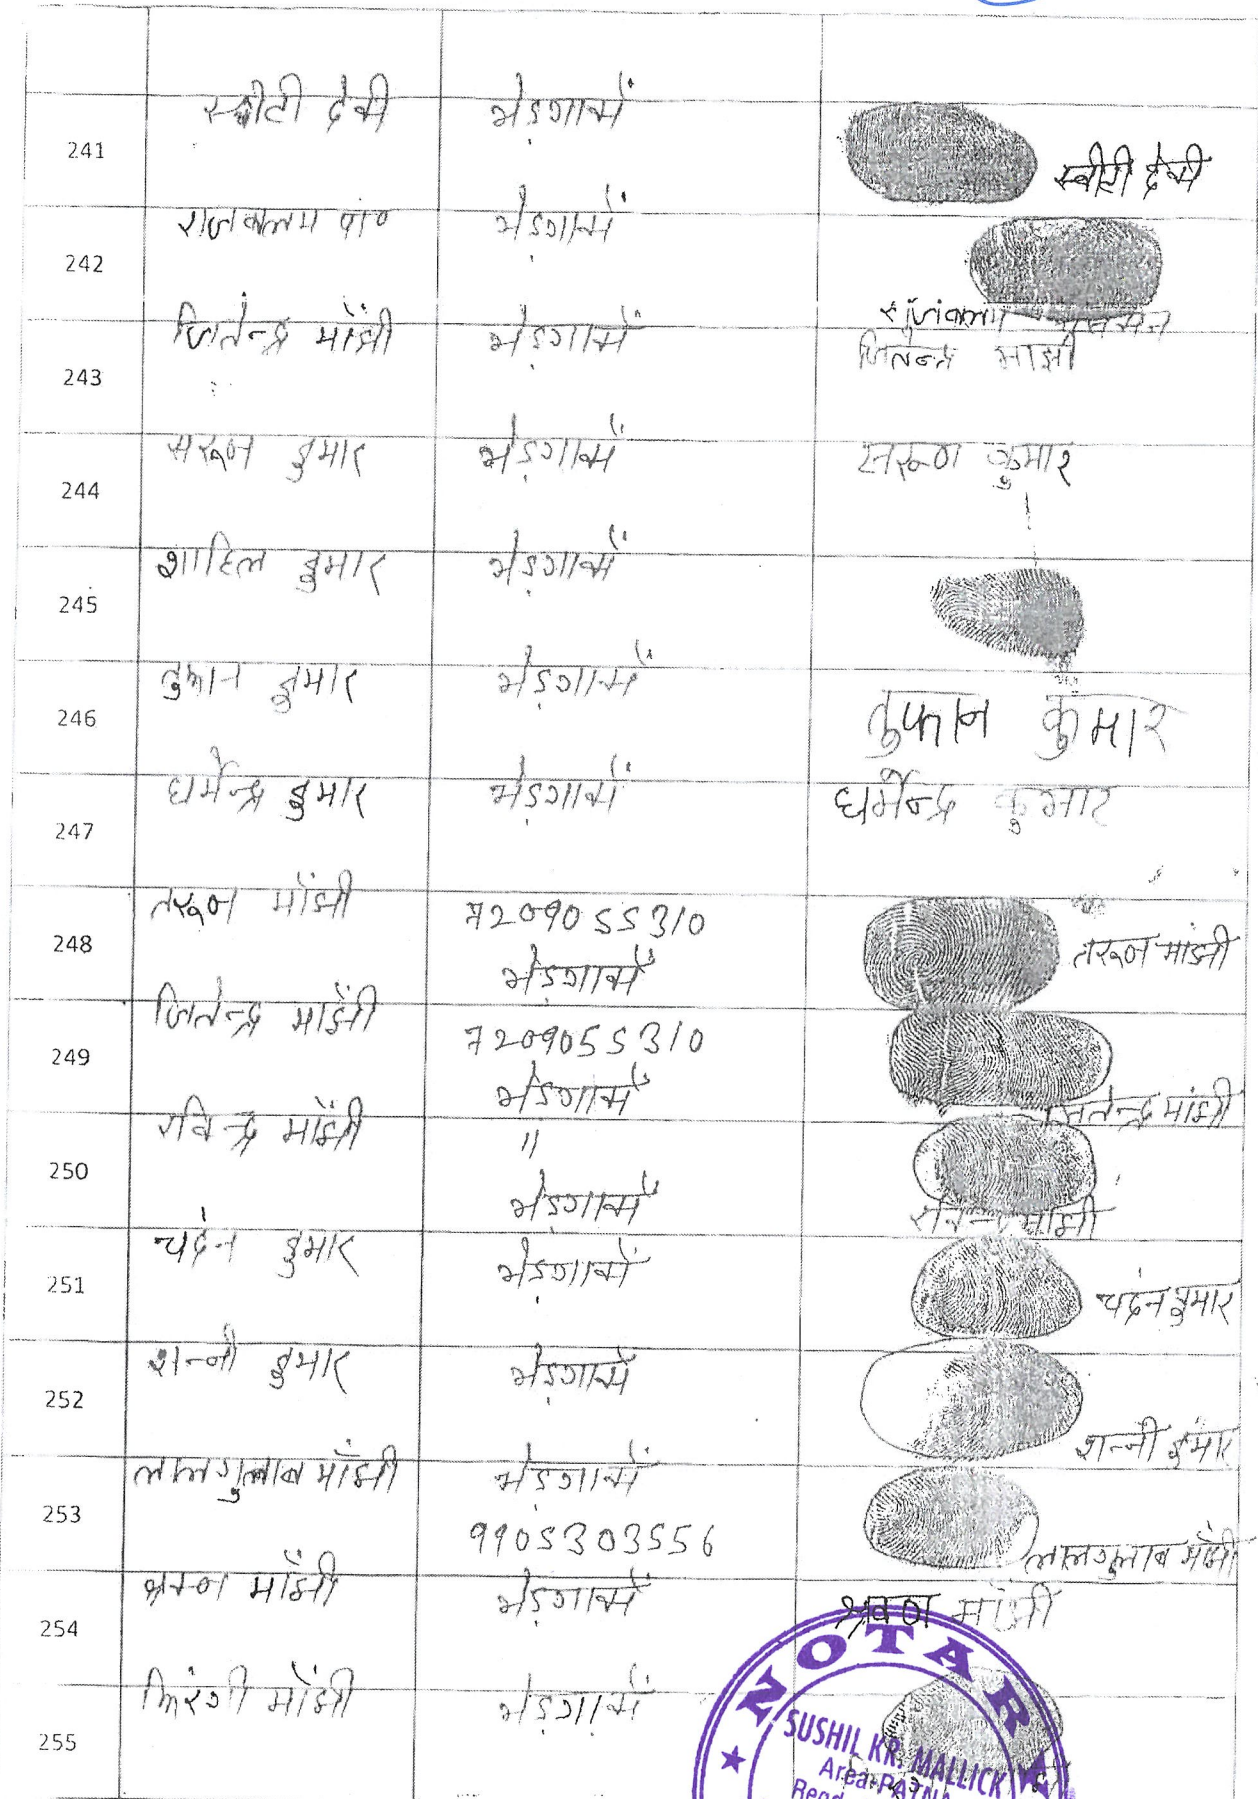 241 स्वीटी देवी भेड़गामें स्वीटी देवी
242 भेड़गामें
243 जितेन्द्र माँझी भेड़गामें जितेन्द्र माझी
244 सरून कुमार भेड़गामें सरूण कुमार
245 शाहिल कुमार भेड़गामें
246 तुफान कुमार भेड़गामें तुफान कुमार
247 धर्मेन्द्र कुमार भेड़गामें धर्मेन्द्र कुमार
248 तरून माँझी 7209055310 तरून मांझी
भेड़गामें
249 जितेन्द्र माँझी 7209055310
भेड़गामें जितेन्द्र मांझी
250 रविन्द्र माँझी "
भेड़गामें माँझी
251 चदंन कुमार भेड़गामें चदंन कुमार
252 शन्नी कुमार भेड़गामें शन्नी कुमार
253 लालगुलाब माँझी भेड़गामें
9905303556 लालगुलाब माँझी
254 माँझी भेड़गामें श्रवण माँझी
255 फिरंगी माँझी भेड़गामें
NOTAR
SUSHIL KR. MALLICK
Area-PATNA